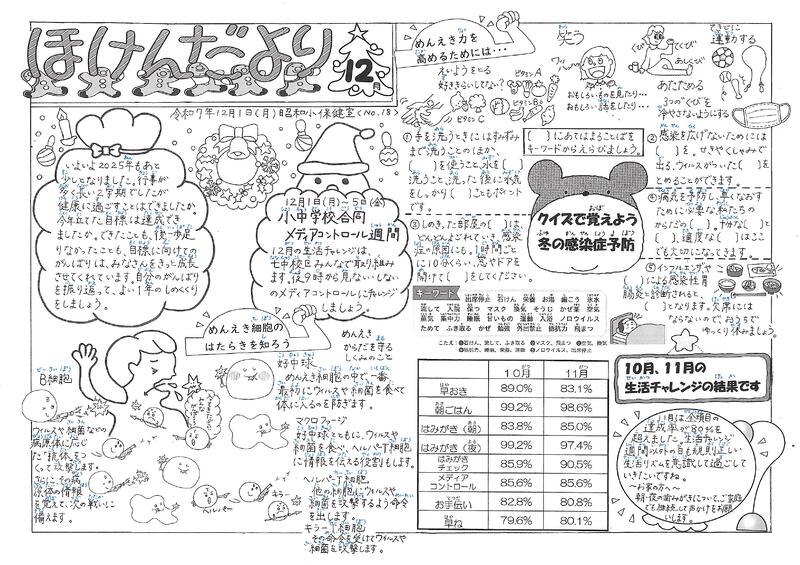 ほけんだより
12月
令和7年12月1日(月)昭和小保健室(No.18)
いよいよ2025年もあと
少しとなりました。行事が
多く長い2学期でしたが
健康に過ごすことはできましたか。
今年立てた目標は達成でき
ましたか。できたことも、後一歩足
りなかったことも、目標に向けての
がんばりは、みなさんをきっと成長
させてくれています。自分のがんばり
を振り返って、よい1年のしめくくり
をしましょう。
12月1日(月)~5日(金)
小中学校合同
メディアコントロール週間
12月の生活チャレンジは、
七中校区みんなで取り組み
ます。夜9時から見ない・しない
のメディアコントロールにチャレンジ
しましょう。
めんえき力を
高めるためには…
えいようをとる
好ききらいしてない?
ビタミンA
ビタミンC
笑う
ワッハッハ
おもしろいものを見たり…
おもしろい話をしたり…
運動する
くび
てくび
あしくび
あたためる
3つの"くび"を
冷やさないようにする
( )にあてはまることばを
キーワードからえらびましょう。
クイズで覚えよう
冬の感染症予防
①手を洗うときにはすみずみ
まで洗うことのほか、
( )を使うこと、水を( )
洗うこと、洗った後に水気を
しっかり( )こともポイント
です。
②感染を広げないためには
( )を。せきやくしゃみで
出る、ウイルスがついた( )を
とめることができます。
③しめきった部屋の( )は
どんどんよごれていき、感染
症の原因にも。1時間ごと
に10分くらい、窓やドアを
開けて( )をしてください。
④病気を予防し、重くなおす
ために必要な、私たちの
からだの( )。十分な( )と
( )、適度な( )はここ
でも大切になってきます。
⑤インフルエンザや
( )による感染性胃
腸炎と診断されると、
( )となります。欠席には
ならないので、おうちで
ゆっくり休みましょう。
キーワード
出席停止 石けん 栄養 お湯 歯こう 流水
流して 入院 保つ マスク 換気 そうじ かぜ薬 空気
蒸気 集中力 睡眠 甘いもの 運動 入浴 ノロウイルス
ためて ふき取る かぜ 勉強 外出禁止 抵抗力 飛まつ
こたえ:①石けん、流して、ふき取る ②マスク、飛まつ ③空気、換気
④抵抗力、睡眠、栄養、運動 ⑤ノロウイルス、出席停止
めんえき細胞の
はたらきを知ろう
めんえき
からだを守る
しくみのこと
B細胞
ウイルスや細菌などの
病原体に応じ
た"抗体"をつ
くって攻撃します。
さらに、その病
原体の情報
を覚えて、次の戦いに
備えます。
好中球
めんえき細胞の中で一番
最初にウイルスや細菌を食べて
体に入るのを防ぎます。
マクロファージ
好中球とともに、ウイルスや
細菌を食べ、ヘルパーT細胞
に情報を伝える役割もします。
ヘルパーT細胞
他の細胞にウイルスや
細菌を攻撃するよう命令
を出します。
キラーT細胞
その命令を受けてウイルスや
細菌を攻撃します。
ヘルパー
キラー
10月 11月
早おき 89.0% 83.1%
朝ごはん 99.2% 98.6%
はみがき(朝) 83.8% 85.0%
はみがき(夜) 99.2% 97.4%
はみがきチェック 85.9% 90.5%
メディアコントロール 85.6% 85.6%
お手伝い 82.8% 80.8%
早ね 79.6% 80.1%
10月、11月の
生活チャレンジの結果です
11月は全項目の
達成率が80%を
超えました。生活チャレンジ
週間以外の日も規則正しい
生活リズムを意識して過ごして
いきたいですね。
~お家の方へ~
朝・夜の歯みがきについて、ご家庭
でも継続して声かけをお願
いします。